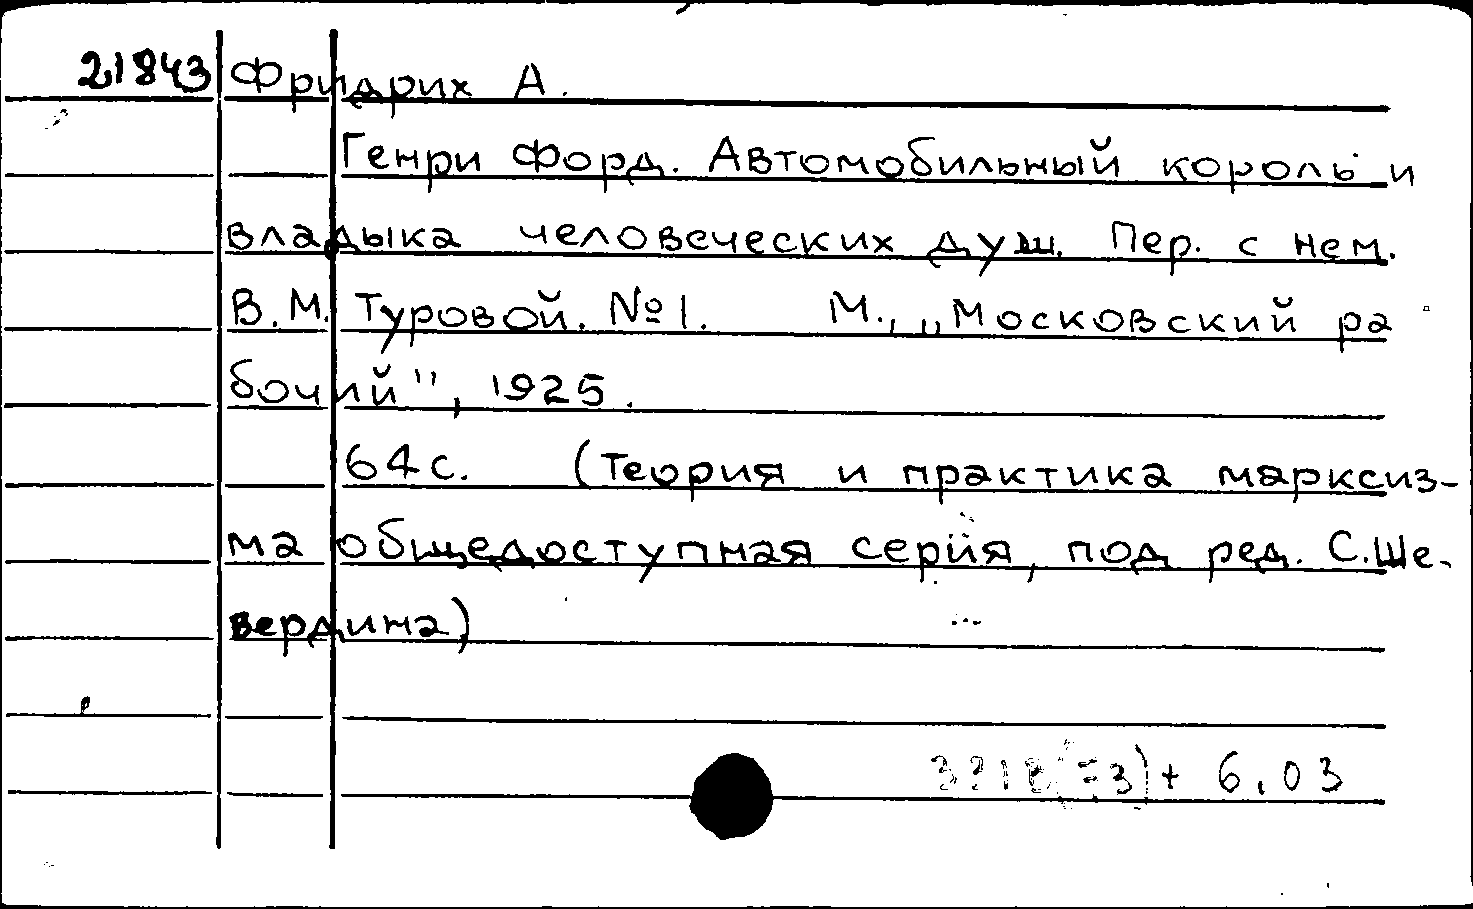 21843 Фридрих А.
Генри Форд. Автомобильный король и
владыка человеческих душ. Пер. с нем.
В.М. Туровой. №1. М., „Московский ра
бочий", 1925.
64 с. (Теория и практика марксиз-
ма общедоступная серия, под ред. С.Ше-
вердина)
+ 6.03